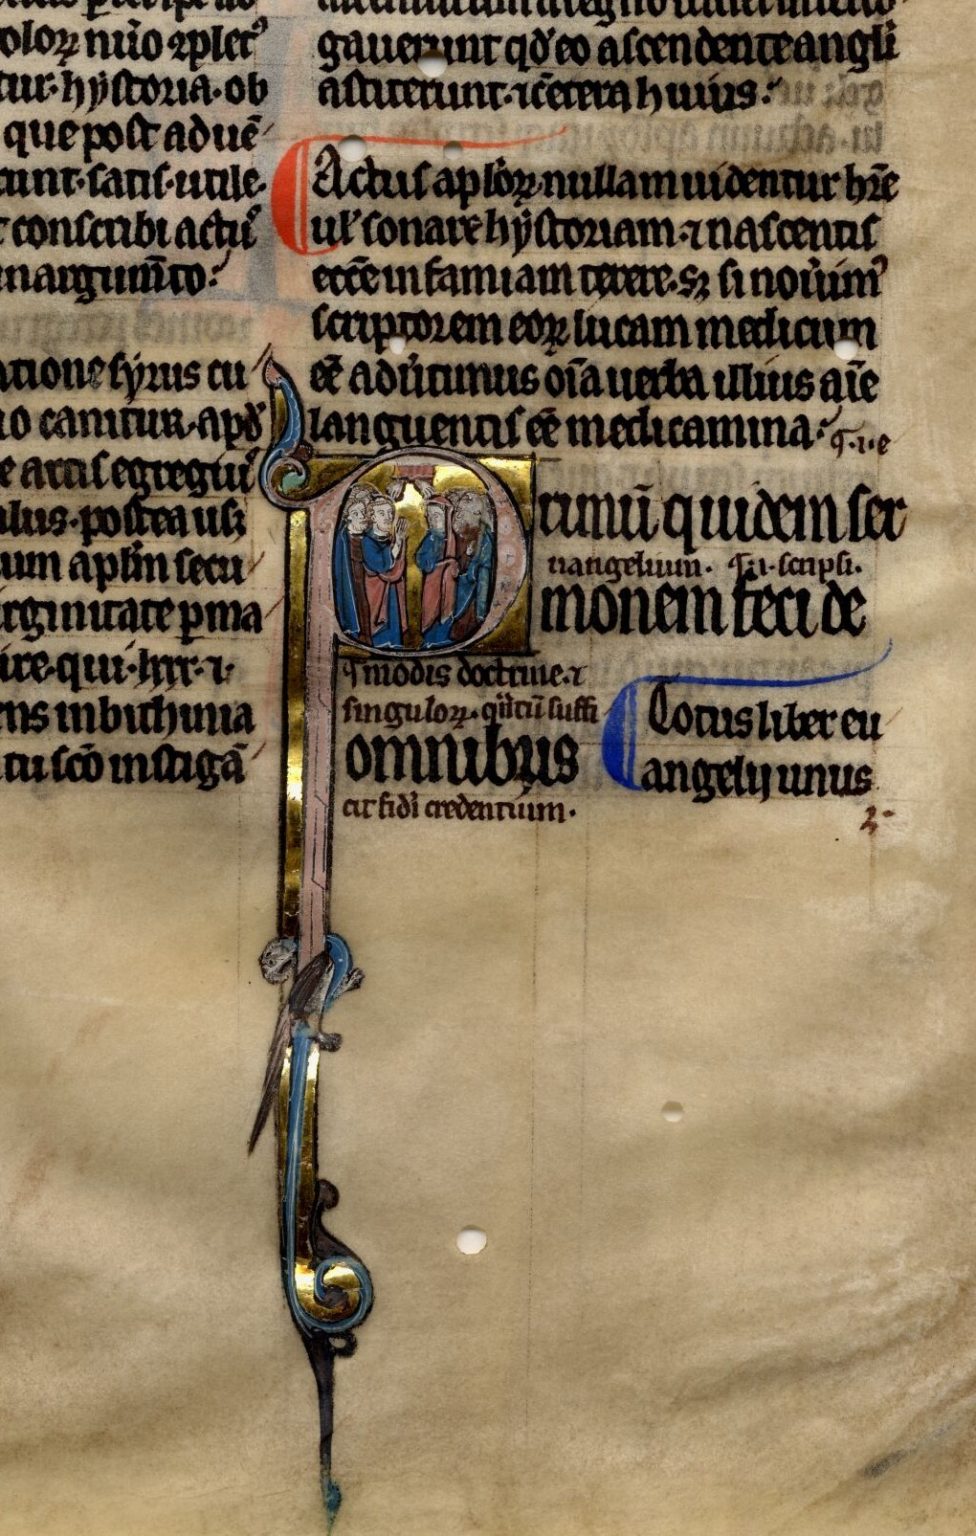 olorꝝ nūo ꝛplet⁹
tur·hẏstoria·ob
que post aduē
unt·satis·utile·
conscribi actū
nargum̄to·
atione syrus cu
o canitur·apđ
e artis egregiu⁹
lus·postea usꝫ
um apl̄m secu
rginitate ꝑma
ire·qui·hr̄r·⁊·
ens inbithinia
tu sc̄o instigā
gauerunt qđ eo ascendente angli
astiterunt·⁊cētera huius·
Actus apl̄orꝝ nullam uidentur hr̄e
ul̕ sonare hẏstoriam·⁊ nascentis
ecc̄e infamiam terere·sꝫ si nou̓im⁹
scriptorem eorꝝ lucam medicum
eē̄ adu̓timus oīa uerba illius aīe
languentis eē̄ medicamina· ¶·i·e
Primū quidem ser
uangelium· ¶·i·scripsi·
monem feci de
¶ modis doctrine·⁊
singulorꝝ· suffi
omnibus
cit fidi credentium·
Totus liber eu
angelij unus